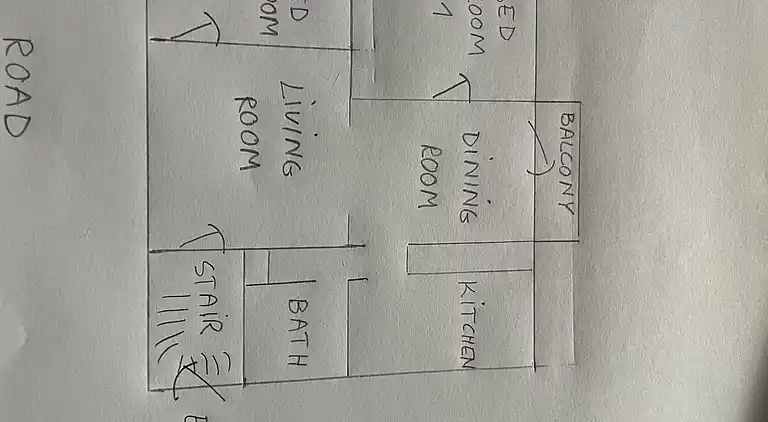 ROAD
LIVING
ROOM
DINING
ROOM
BALCONY
STAIR
BATH
KITCHEN